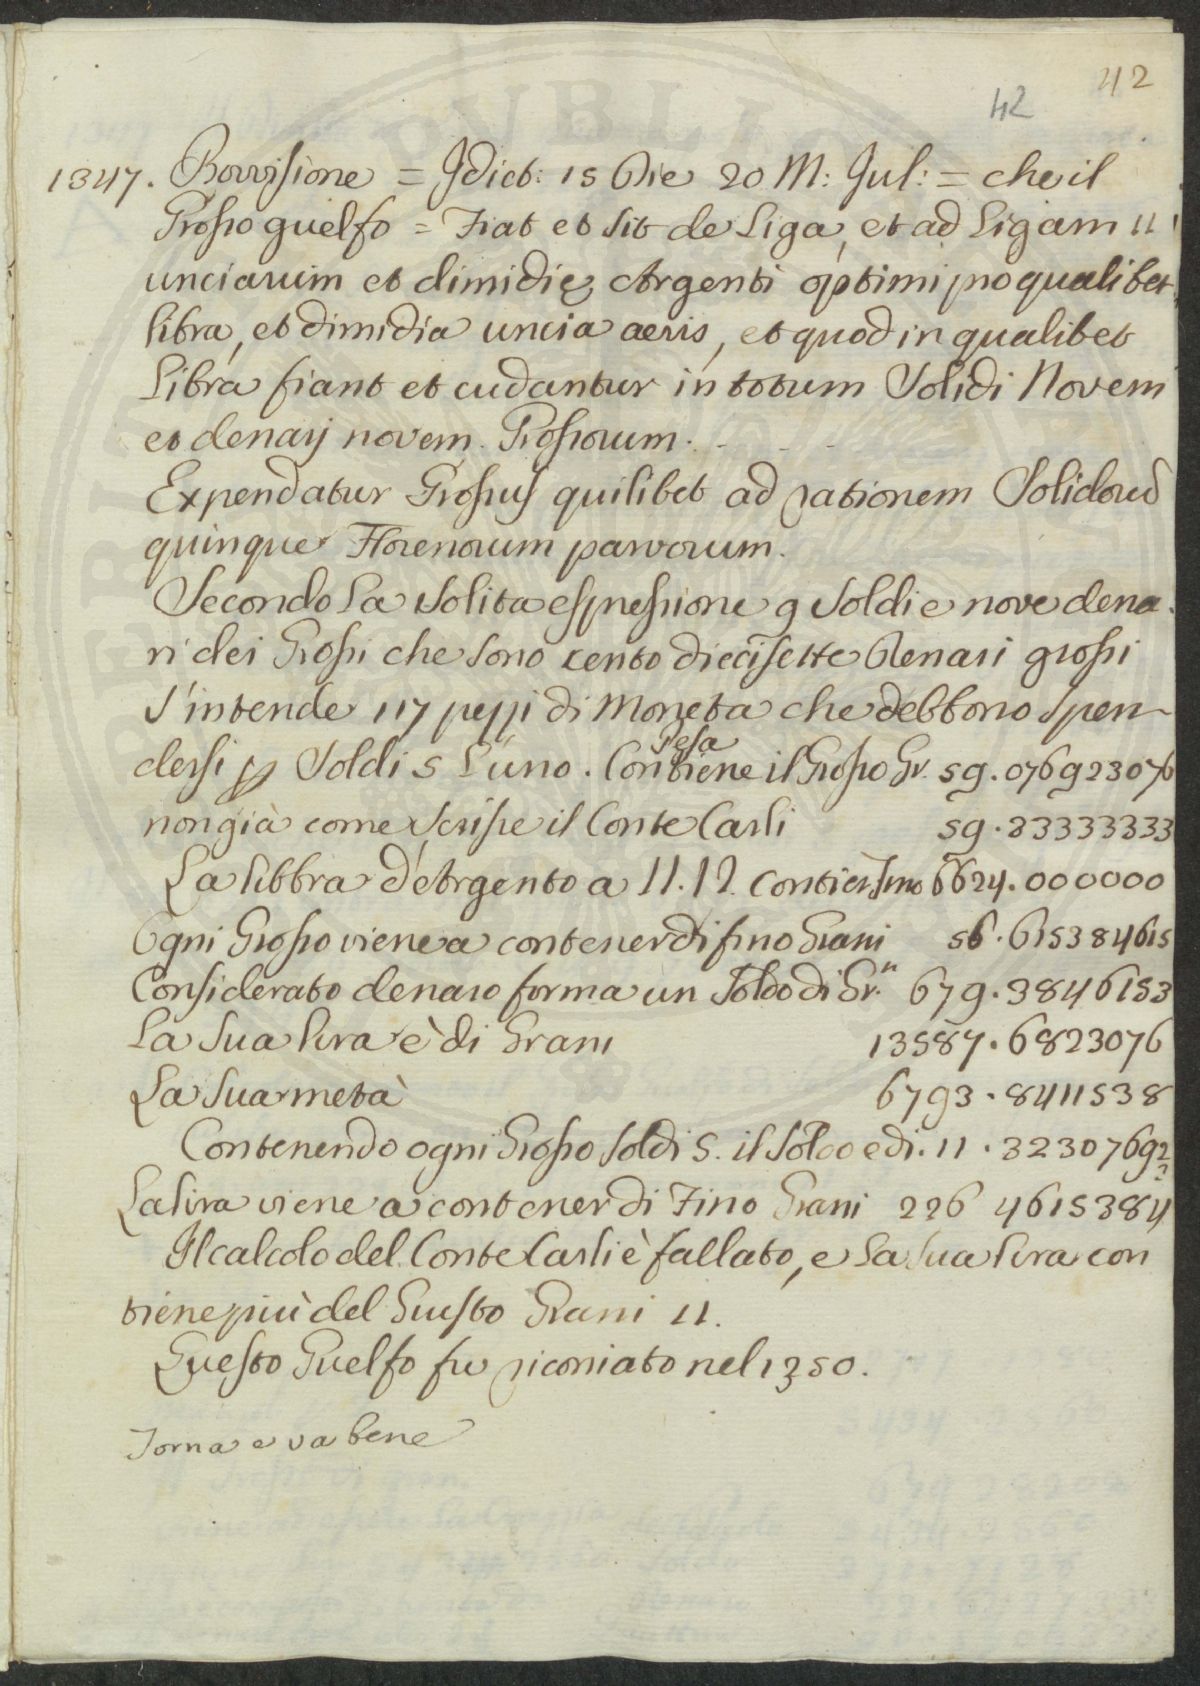 42
42
1347. Provvisione = Jdict: 15 Die 20 M: Jul: = che il
Grosso guelfo = Fiat et sit de Liga, et ad Ligam 11
unciarum et dimidię Argenti optimi pro qualibet
libra, et dimidia uncia aeris, et quod in qualibet
Libra fiant et cudantur in totum Solidi Novem
et denarij novem Grossorum.
Expendatur Grossus quilibet ad rationem Solidorū
quinque Florenorum parvorum.
Secondo la solita espressione 9 soldi e nove dena
ri dei Grossi che sono cento diecisette Denari grossi
s'intende 117 pezzi di Moneta che debbono spen-
dersi p Soldi 5 l'uno. Contiene il Grosso Gr. 59.076923076
Pesa
non già come scrisse il Conte Carli 59.33333333
La libbra d'Argento a 11.12 contien fino 6624.000000
Ogni Grosso viene a contener di fino Grani 56.615384615
Considerato denaro forma un Soldo di Gr.ⁿ 679.3846153
La sua lira è di Grani 13587.6823076
La sua metà 6793.8411538
Contenendo ogni Grosso soldi 5. il soldo è di. 11.32307692
La lira viene a contener di Fino Grani 226 4615384
Il calcolo del Conte Carli è fallato, e la sua lira con
tiene più del Giusto Grani 11.
Questo Guelfo fu riconiato nel 1350.
Torna e va bene